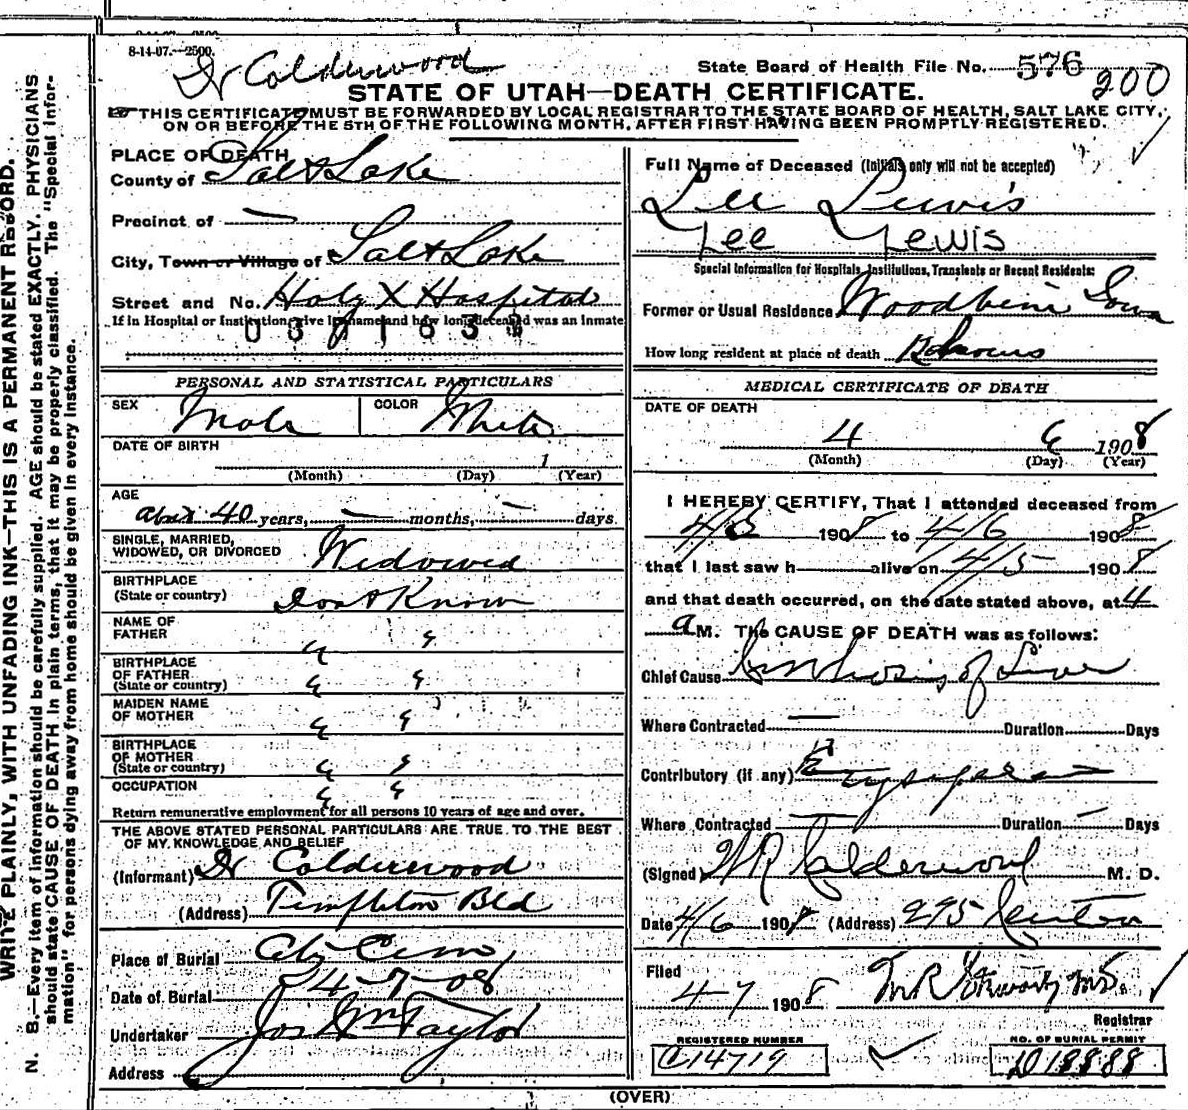 8-14-07.—2500.
Dr Calderwood
State Board of Health File No. 576
200
STATE OF UTAH—DEATH CERTIFICATE.
THIS CERTIFICATE MUST BE FORWARDED BY LOCAL REGISTRAR TO THE STATE BOARD OF HEALTH, SALT LAKE CITY,
ON OR BEFORE THE 5TH OF THE FOLLOWING MONTH, AFTER FIRST HAVING BEEN PROMPTLY REGISTERED.
WRITE PLAINLY, WITH UNFADING INK—THIS IS A PERMANENT RECORD.
N. B.—Every item of information should be carefully supplied. AGE should be stated EXACTLY. PHYSICIANS
should state CAUSE OF DEATH in plain terms, that it may be properly classified. The "Special Infor-
mation" for persons dying away from home should be given in every instance.
PLACE OF DEATH
County of Salt Lake
Precinct of —
City, Town or Village of Salt Lake
Street and No. Holy X Hospital
If in Hospital or Institution, give its name and how long deceased was an inmate
PERSONAL AND STATISTICAL PARTICULARS
SEX Male COLOR White
DATE OF BIRTH
1
(Month) (Day) (Year)
AGE
abut 40 years, — months, — days.
SINGLE, MARRIED,
WIDOWED, OR DIVORCED Widowed
BIRTHPLACE
(State or country) Dont Know
NAME OF
FATHER " "
BIRTHPLACE
OF FATHER
(State or country) " "
MAIDEN NAME
OF MOTHER " "
BIRTHPLACE
OF MOTHER
(State or country) " "
OCCUPATION " "
Return remunerative employment for all persons 10 years of age and over.
THE ABOVE STATED PERSONAL PARTICULARS ARE TRUE TO THE BEST
OF MY KNOWLEDGE AND BELIEF
(Informant) Dr Calderwood
(Address) Templeton Bld
Place of Burial City Cem
Date of Burial 4-7-08
Undertaker Jos Wm Taylor
Address
Full Name of Deceased (Initials only will not be accepted)
Lee Lewis
Lee Lewis
Special Information for Hospitals, Institutions, Transients or Recent Residents:
Former or Usual Residence Woodbine Iowa
How long resident at place of death hours
MEDICAL CERTIFICATE OF DEATH
DATE OF DEATH
4 6 1908
(Month) (Day) (Year)
I HEREBY CERTIFY, That I attended deceased from
4/5 1908 to 4/6 1908
that I last saw h alive on 4/5 1908
and that death occurred, on the date stated above, at 4
a M. The CAUSE OF DEATH was as follows:
Chief Cause Cirrhosis of Liver
Where Contracted — Duration Days
Contributory (if any) Erysipelas
Where Contracted — Duration — Days
(Signed) W R Calderwood M. D.
Date 4/6 1908 (Address) 295
Filed
4-7 1908
Registrar
REGISTERED NUMBER
C14719
NO. OF BURIAL PERMIT
D18888
(OVER)